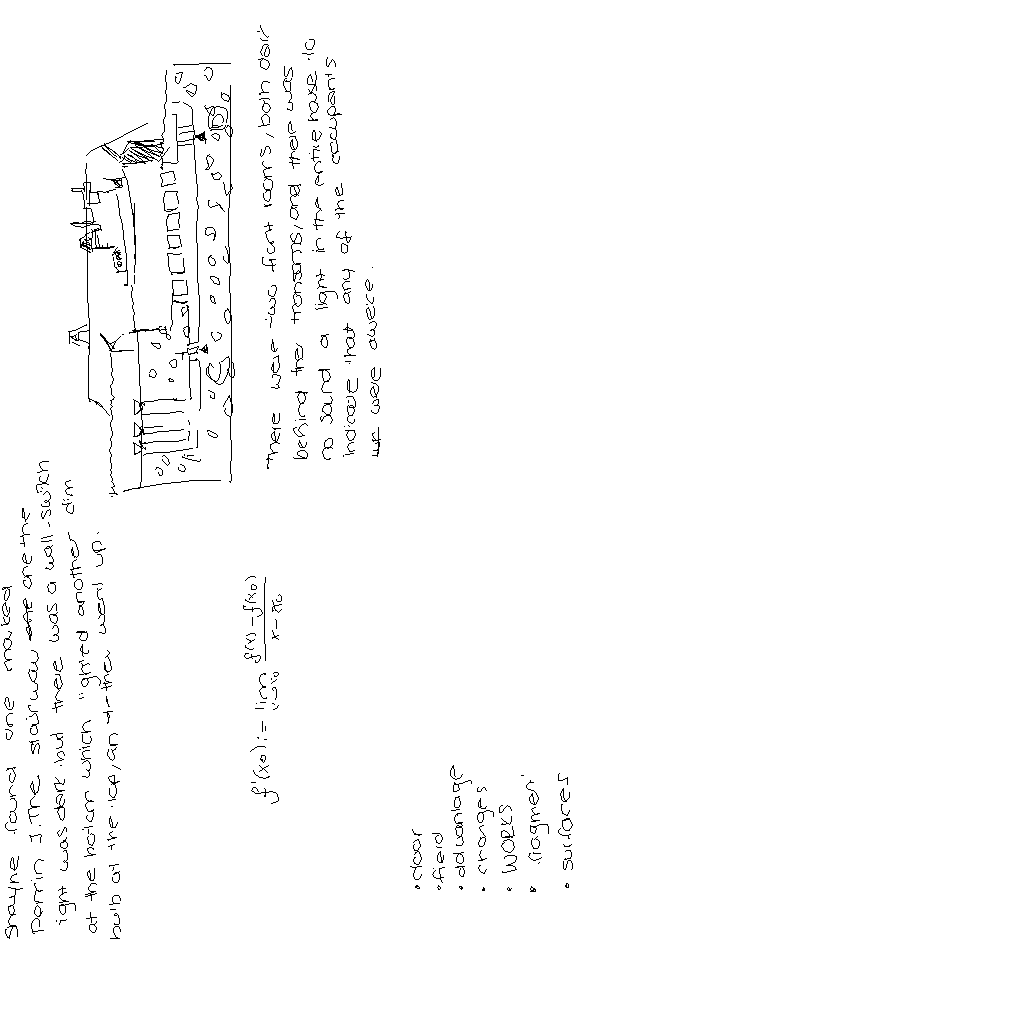 Shayne found one marked
Perrin J. The stairway one the
ight was dark but there was a wall-switch
at the bottom which lighted another dim
bulb at the top, and they went up.
There were two front rooms, both dark
behind their transoms, and there was
no sound or light in the entire house to
indicate that any of the occupants
were aware.
f'(x₀) := lim x→x₀ (f(x) - f(x₀)) / (x - x₀)
• door
• field
• advantage
• changes
• WORKS
• fragment
• surfaces